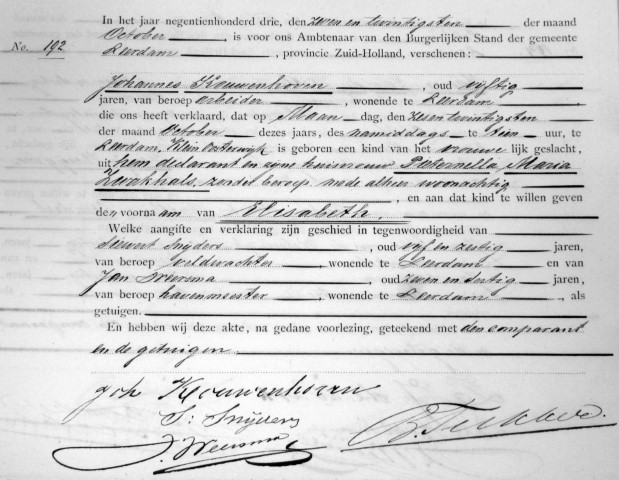 In het jaar negentienhonderd drie, den zeven en twintigsten der maand
October, is voor ons Ambtenaar van den Burgerlijken Stand der gemeente
No. 192
Leerdam, provincie Zuid-Holland, verschenen:
Johannes Kouwenhoven, oud vijftig
jaren, van beroep arbeider, wonende te Leerdam
die ons heeft verklaard, dat op Maandag, den zes en twintigsten
der maand October dezes jaars, des namiddags te tien uur, te
Leerdam, Klein Oosterwijk is geboren een kind van het vrouwelijk geslacht,
uit hem declarant en zijne huisvrouw Pieternella Maria
Zwakhals, zonder beroep, mede alhier woonachtig
, en aan dat kind te willen geven
den voornaam van Elisabeth.
Welke aangifte en verklaring zijn geschied in tegenwoordigheid van
Sievert Snijders, oud vijf en zestig jaren,
van beroep veldwachter, wonende te Leerdam en van
Jan Weersma, oud zeven en dertig jaren,
van beroep havenmeester, wonende te Leerdam, als
getuigen.
En hebben wij deze akte, na gedane voorlezing, geteekend met den comparant
en de getuigen
Joh Kouwenhoven
S: Snijders
J. Weersma